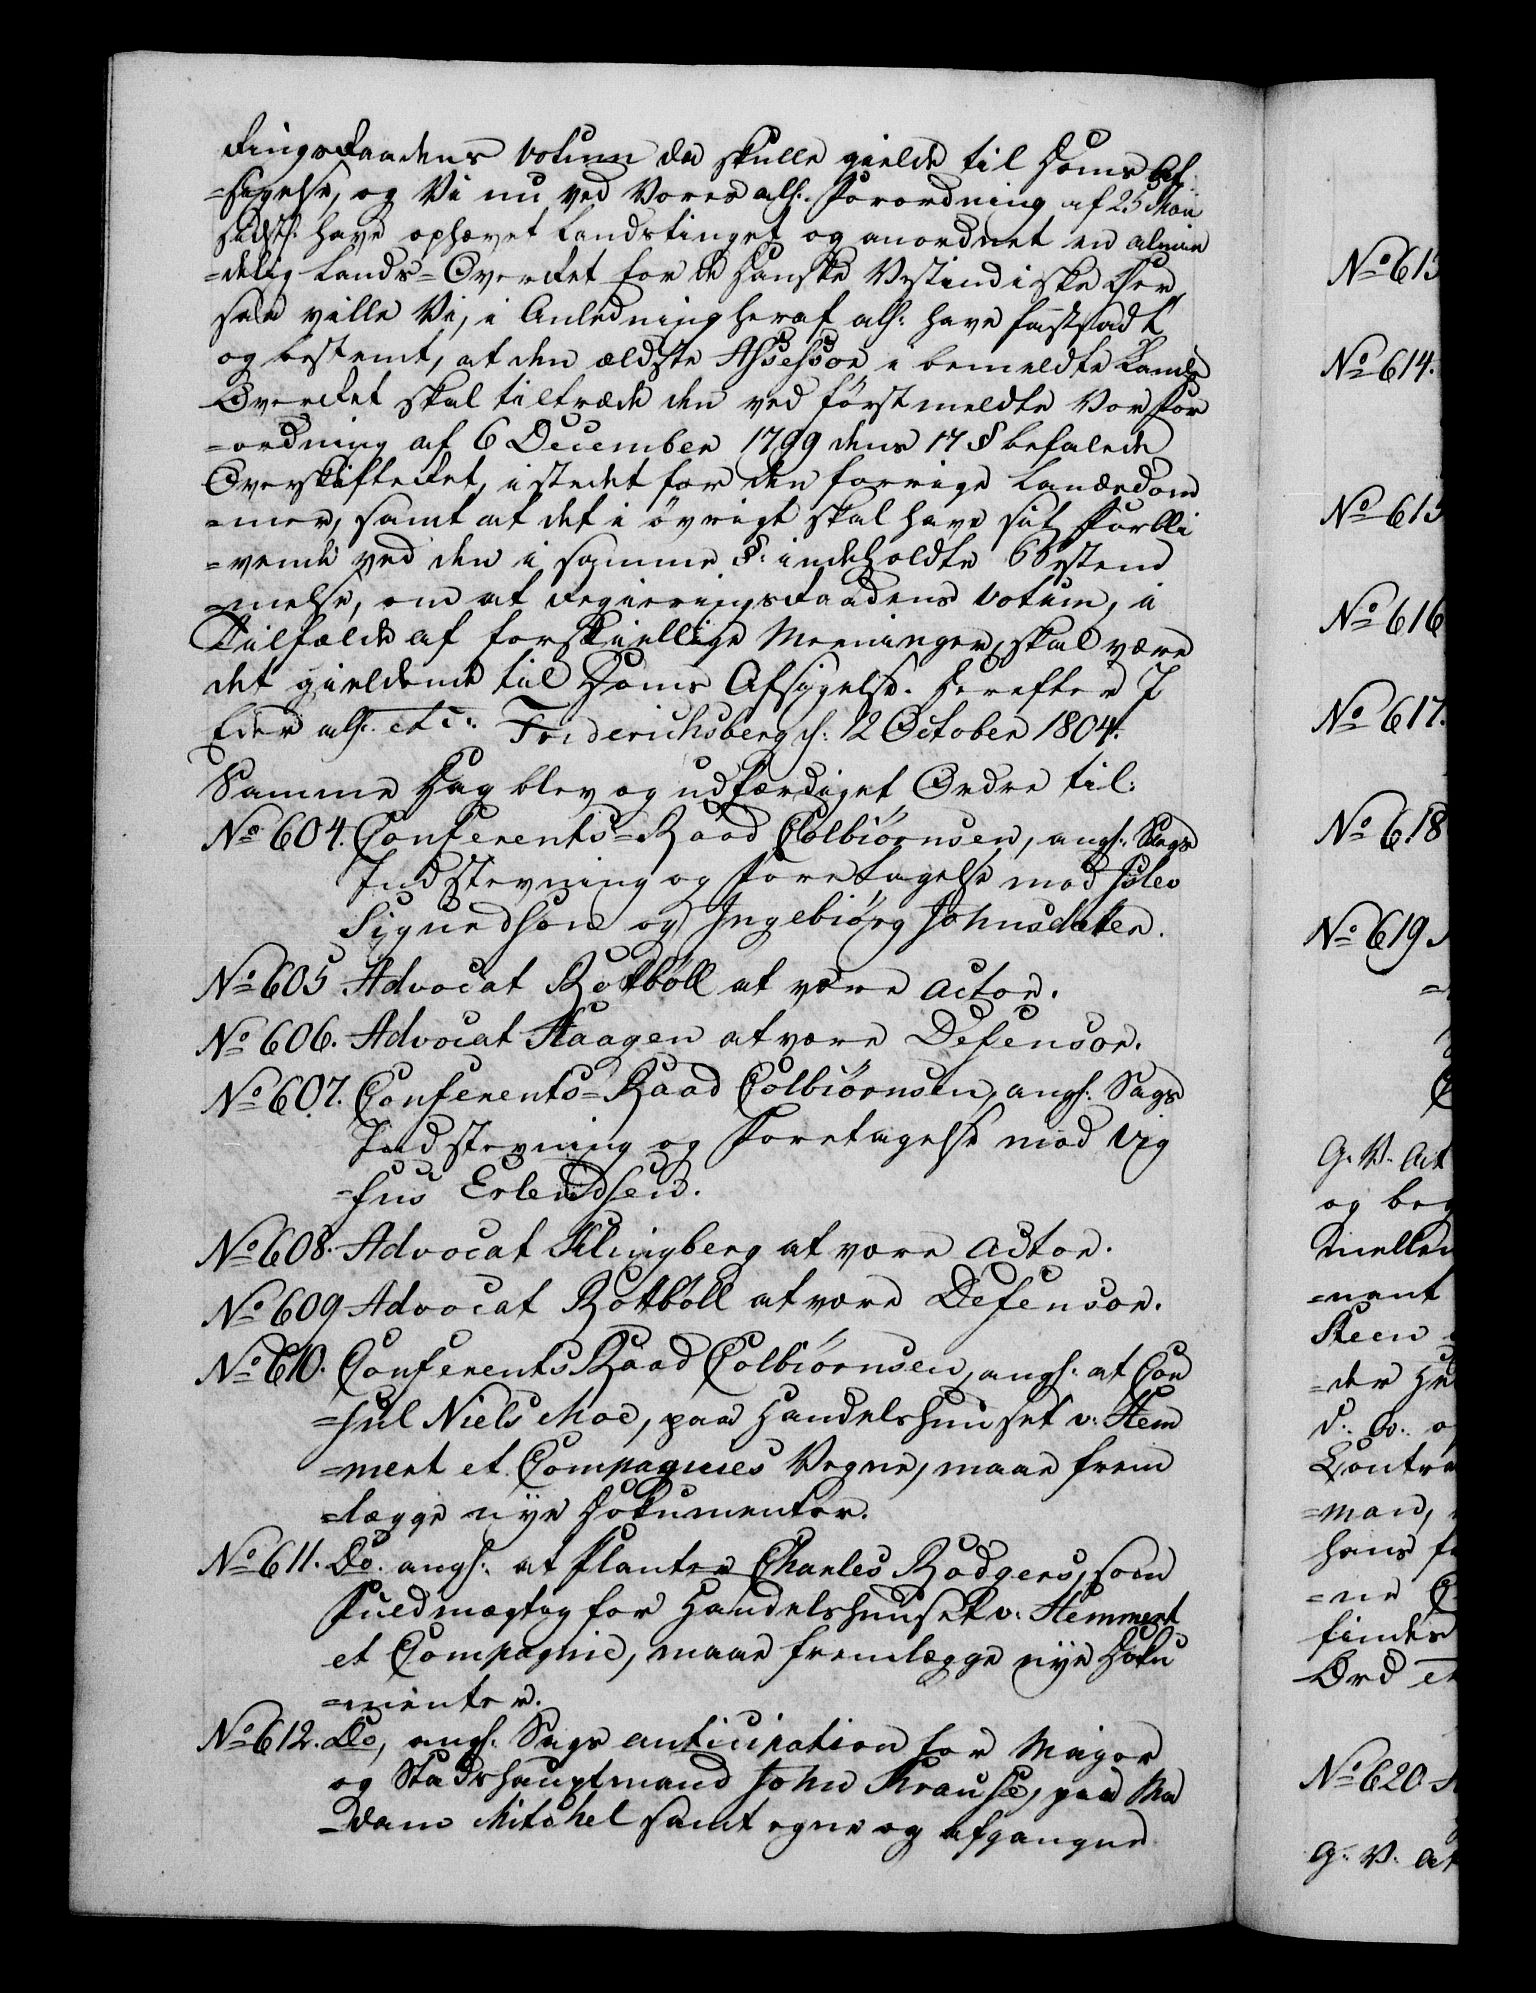 ringsRaadens Votum da skulle gielde til Doms Af¬
=sigelse, og Vi nu ved Vores alls: Forordning af 25 Maii
sidstl: have ophævet Landstinget og anordnet en almin
=delig Lands=Overret for de Danske Vestindiske Øer,
saa ville Vi, i Anledning heraf alls: have fastsadt
og bestemt, at den ældste Assessor i bemeldte Lands
Overret skal tiltræde den ved først meldte Vor For
=ordning af 6 December 1799 dens 17 § befalede
Overskifteret, istedet for den forrige Landsdom
=mer, samt at det i øvrigt skal have sit Forbli
=vende ved den i samme §: indeholdte Bestem
=melse, om at RegieringsRaadens Votum, i
Tilfælde af forskiellige Meeninger, skal være
det gieldende til Doms Afsigelse. Herefter I
Eder alls: etc: Friderichsberg d: 12 October 1804.
Samme Dag blev og udfærdiget Ordre til:
No 604. Conferents=Raad Colbiørnsen, angl: Sags
Indstevning og Foretagelse mod Isleo
Sigurdson og Ingebiørg Johnsdatter.
No 605 Advocat Rottbøll at være Actor.
No 606. Advocat Haagen at være Defensor.
No 607. Conferents=Raad Colbiørnsen, angl: Sags
Indstevning og Foretagelse mod Vig
=fus Erlendsen.
No 608. Advocat Klingberg at være Actor.
No 609 Advocat Rottbøll at være Defensor.
No 610. ConferentsRaad Colbiørnsen, angl: at Con
=sul Niels Moe, paa Handelshuuset v: Hem
=mert et Compagnies Vegne, maae frem
=lægge nye Dokumenter.
No 611. Do. angl: at Planter Charles Rodgers, som
Fuldmægtig for Handelshuuset v: Hemmert
et Compagnie, maae fremlægge nye Doku
=menter.
No 612. Do, angl: Sags anticipation for Major
og Stadshauptmand John Krause, paa Ma
=dame Mitchel samt egne og afgangne
No 613
No 614.
No 615
No 616
No 617.
No 618
No 619.
G. V. At
og beg
mellem
=nant
Steen
=der
Contra
=man,
hans
=ne
findes
Ord
No 620.
G. V. At